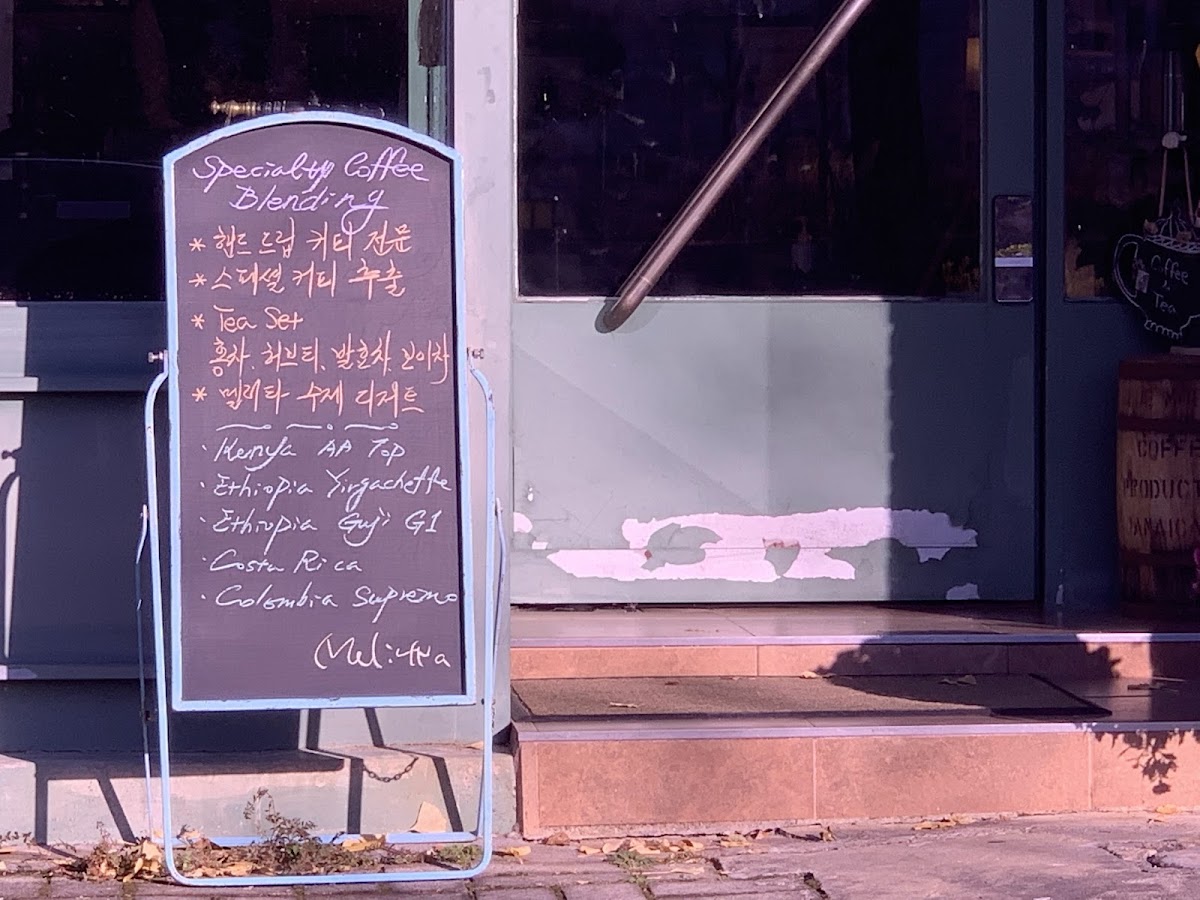 Specialty Coffee
Blending
* 핸드드립 커피 전문
* 스페셜 커피 추출
* Tea Set
홍차. 허브티. 발효차. 보이차
* 멜리타 수제 디저트
· Kenya AA Top
· Ethiopia Yirgacheffe
· Ethiopia Guji G1
· Costa Rica
· Colombia Supremo
Melitta
Coffee
&
Tea
COFFE
PRODUCT
JAMAIC